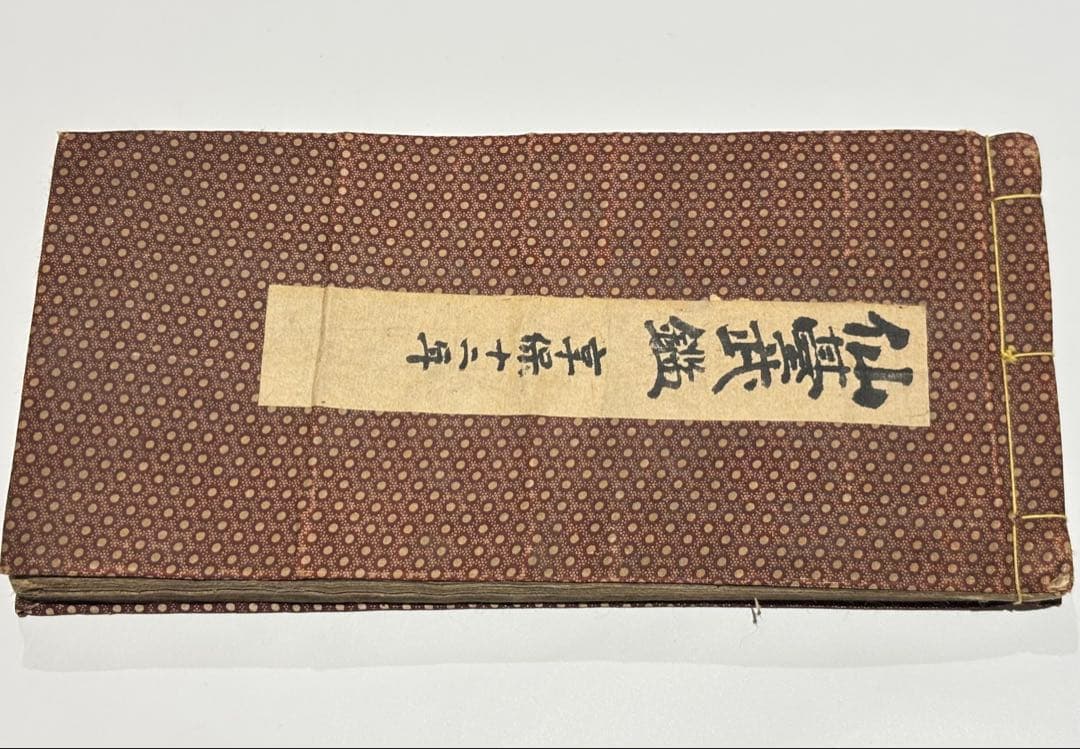 仙臺武鑑
享保十二年